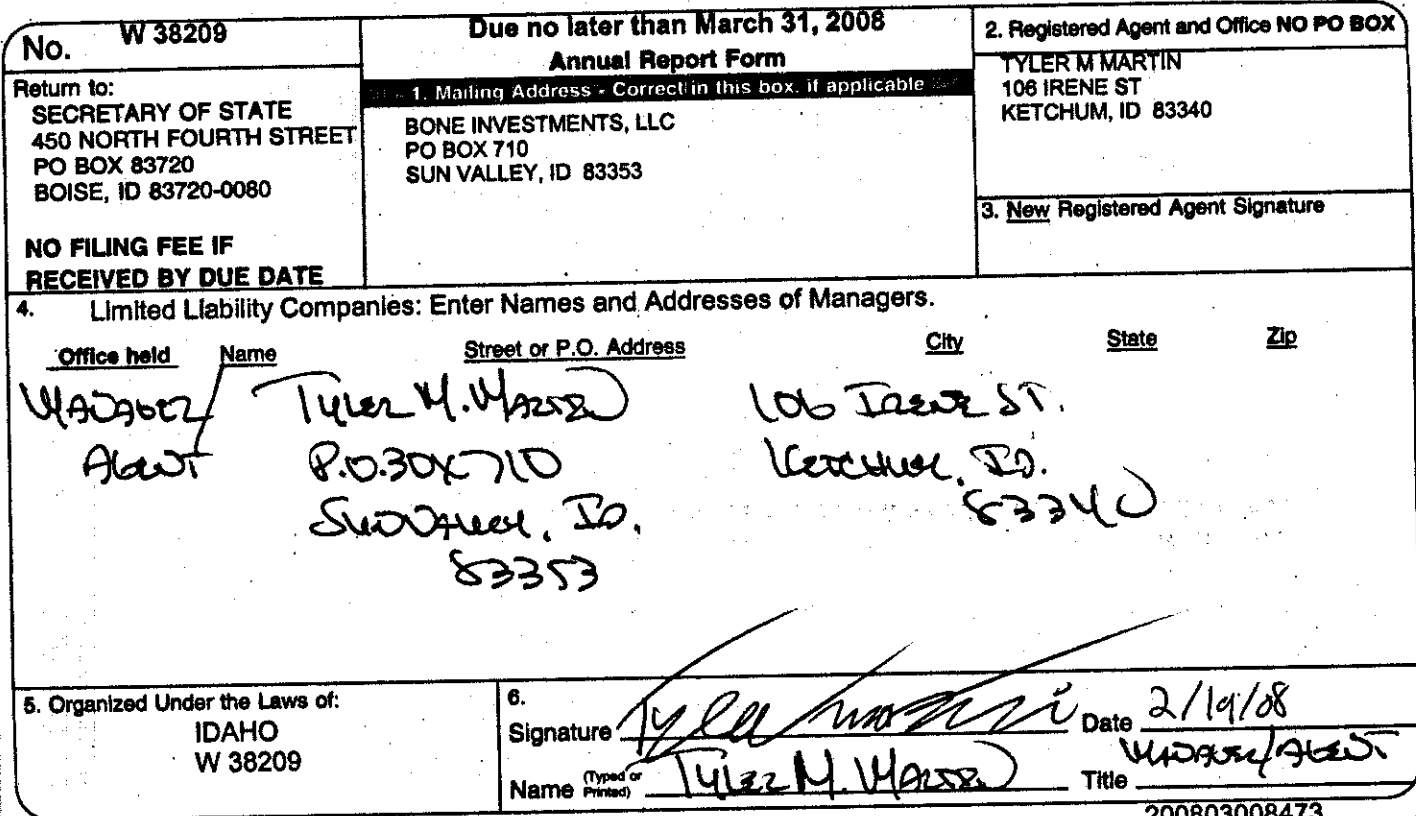 No. W 38209
Return to:
SECRETARY OF STATE
450 NORTH FOURTH STREET
PO BOX 83720
BOISE, ID 83720-0080
NO FILING FEE IF
RECEIVED BY DUE DATE
Due no later than March 31, 2008
Annual Report Form
1. Mailing Address - Correct in this box, if applicable
BONE INVESTMENTS, LLC
PO BOX 710
SUN VALLEY, ID 83353
2. Registered Agent and Office NO PO BOX
TYLER M MARTIN
106 IRENE ST
KETCHUM, ID 83340
3. New Registered Agent Signature
4. Limited Liability Companies: Enter Names and Addresses of Managers.
Office held Name Street or P.O. Address City State Zip
MANAGER/ TYLER M. MARTIN 106 IRENE ST.
AGENT P.O. BOX 710 KETCHUM, ID.
SUN VALLEY, ID. 83340
83353
5. Organized Under the Laws of:
IDAHO
W 38209
6.
Signature Tyler Martin Date 2/19/08
Name (Typed or Printed) TYLER M. MARTIN Title MANAGER/AGENT
200803008473